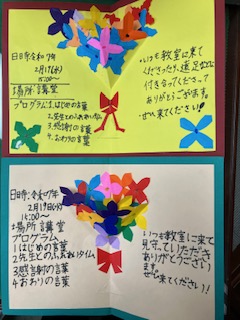 日日寺令和7年
2月19日(水)
15:00〜
場所 講堂
プログラム1.はじめの言葉
2.先生とのふれあいタイム
3.感謝の言葉
4.おわりの言葉
いつも教室に来て
くださったり、遠足などに
付き合ってくださって
ありがとうございます。
ぜひ来てください!!
日日寺:令和7年
2月19日(水)
15:00〜
場所 講堂
プログラム
1はじめの言葉
2先生とのふれあいタイム
3感謝の言葉
4おわりの言葉
いつも教室に来て
見守っていただき
ありがとうござい
ます。
ぜひ来てください!!